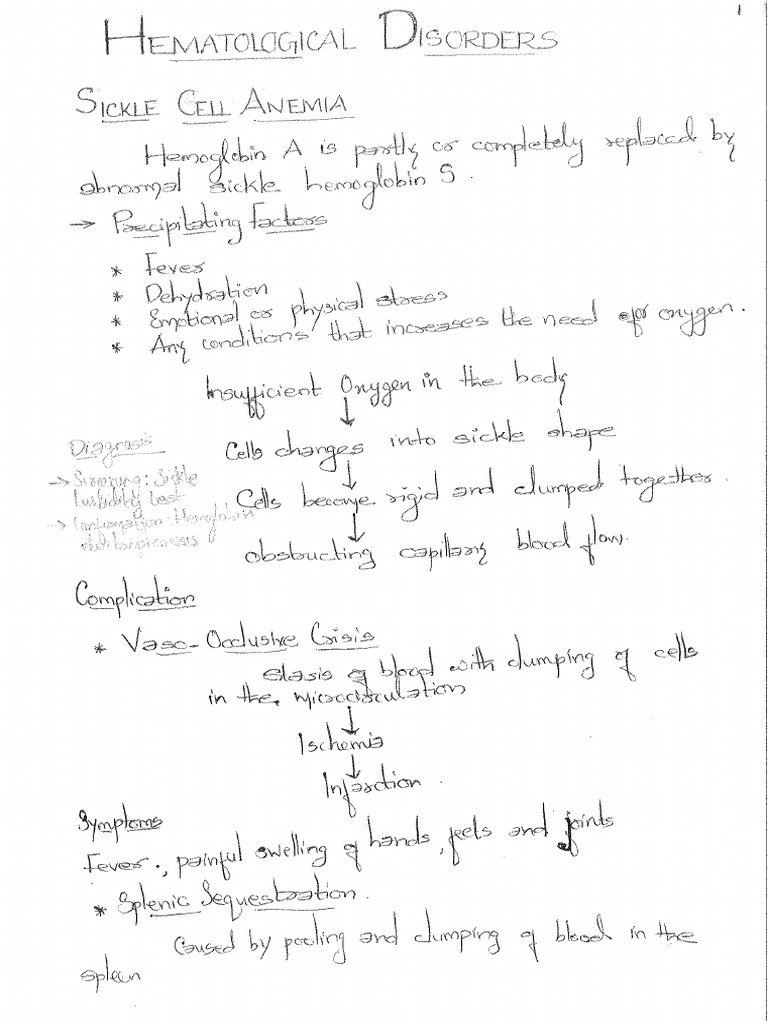 1
HEMATOLOGICAL DISORDERS
SICKLE CELL ANEMIA
Hemoglobin A is partly or completely replaced by
abnormal sickle hemoglobin S.
→ Precipitating Factors
* Fever
* Dehydration
* Emotional or physical stress
* Any conditions that increases the need for oxygen.
Insufficient Oxygen in the body
↓
Cells changes into sickle shape
↓
Cells become rigid and clumped together.
↓
obstructing capillary blood flow.
Diagnosis
→ Screening: Sickle
turbidity test
→ Confirmation: Hemoglobin
electrophoresis
Complication
* Vaso-Occlusive Crisis
stasis of blood with clumping of cells
in the microcirculation
↓
Ischemia
↓
Infarction.
Symptoms
Fever., painful swelling of hands, feets and joints
* Splenic Sequestration.
Caused by pooling and clumping of blood in the
spleen